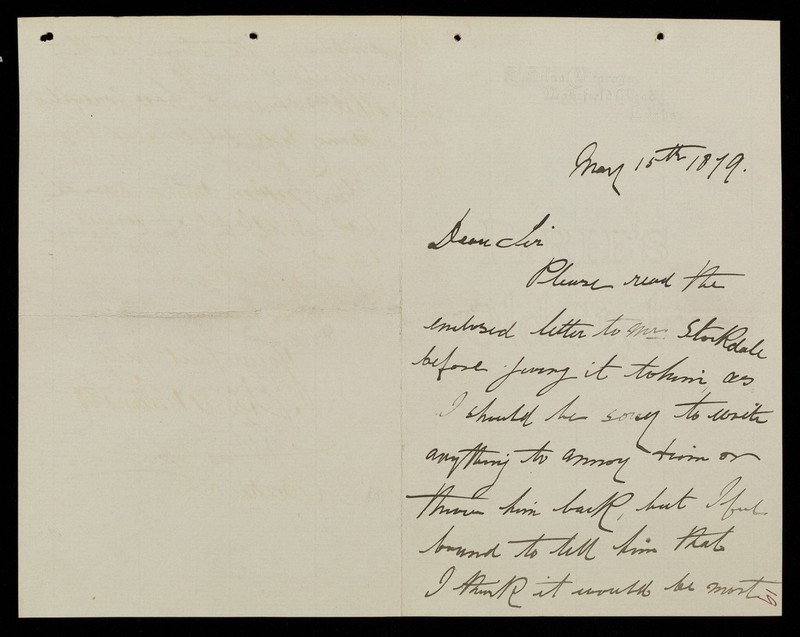 May 15th 1879.
Dear Sir
Please read the
enclosed letter to Mr Stockdale
before giving it to him, as
I should be sorry to write
anything to annoy him or
throw him back, but I feel
bound to tell him that
I think it would be most